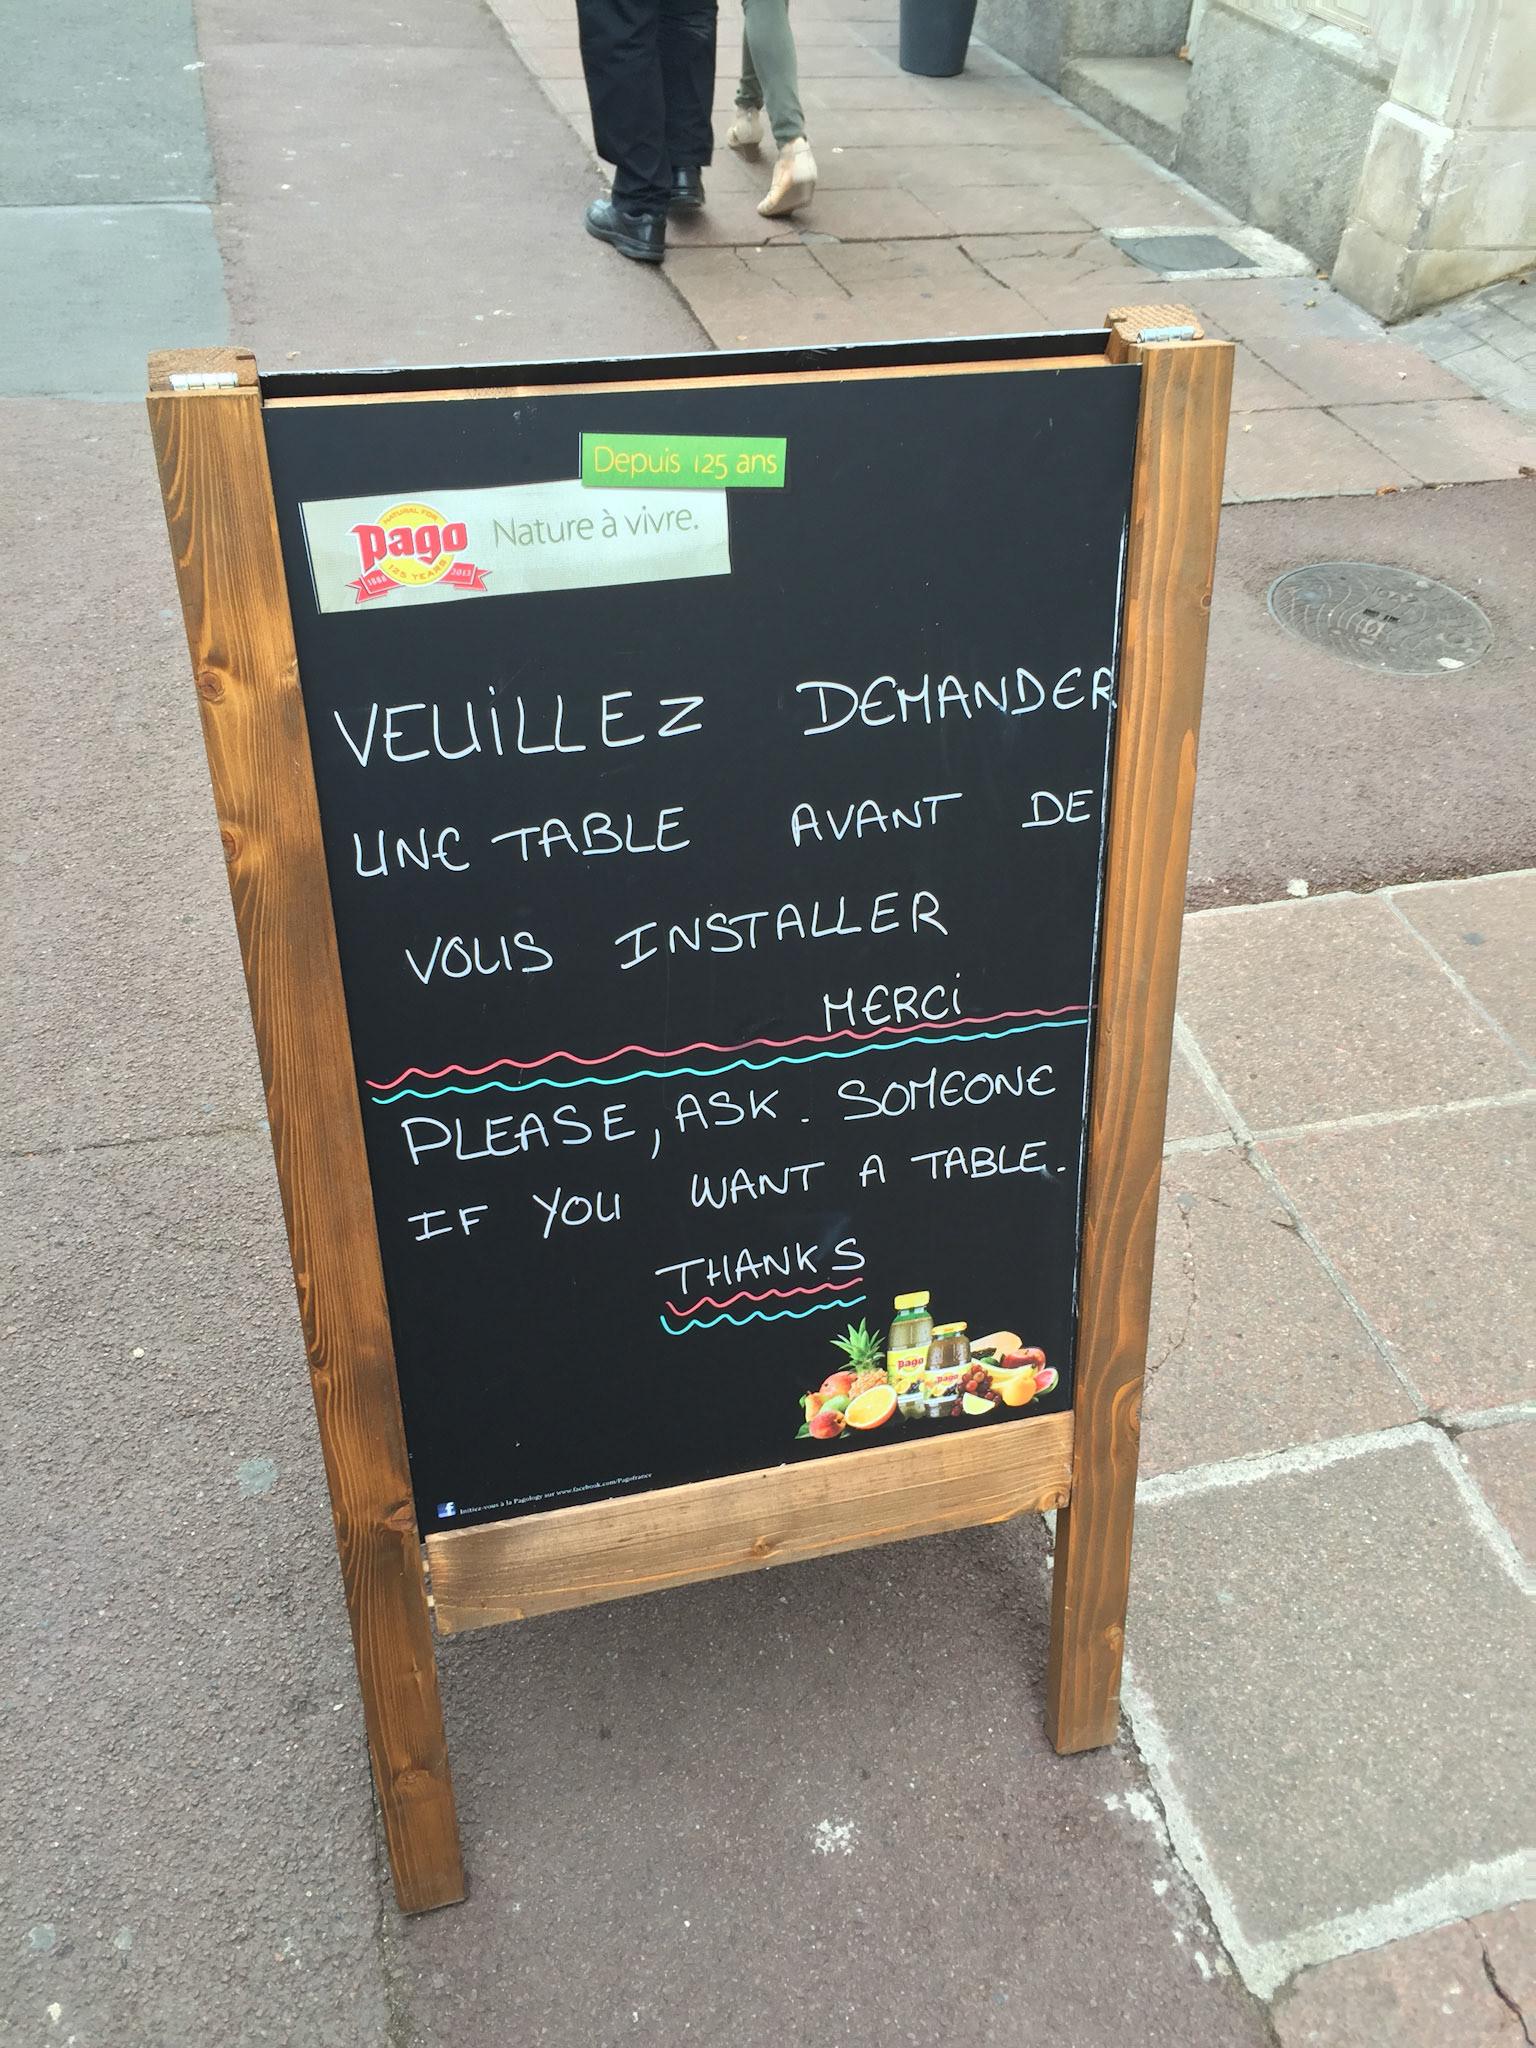 Depuis 125 ans
NATURAL FOR
pago
125 YEARS
1888 2013
Nature à vivre.
VEUiLLEZ DEMANDER
UNE TABLE AVANT DE
VOUS INSTALLER
MERCi
PLEASE, ASK. SOMEONE
IF YOU WANT A TABLE.
THANKS
pago
pago
f Initiez-vous à la Pagology sur www.facebook.com/Pagofrance